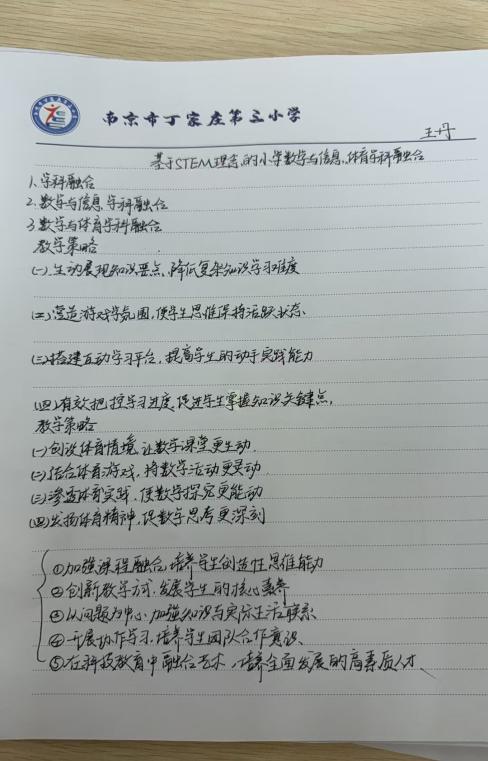 南京市丁家庄第三小学
王丹
基于STEM理念的小学数学与信息、体育学科融合
1.学科融合
2.数学与信息学科融合
3.数学与体育学科融合
教学策略
(一)生动展现知识要点,降低复杂知识学习难度
(二)营造游戏学氛围,使学生思维保持活跃状态、
(三)搭建互动学习平台,提高学生的动手实践能力
(四)有效把控学习进度,促进学生掌握知识关键点,
教学策略
(一)创设体育情境,让数学课堂更生动.
(二)结合体育游戏,将数学活动更灵动.
(三)渗透体育实践,使数学探究更能动
(四)发扬体育精神,促数学思考更深刻
①加强课程融合,培养学生创造性思维能力
②创新教学方式,发展学生的核心素养
③以问题为中心,加强知识与实际生活联系
④开展协作学习,培养学生团队合作意识、
⑤在科技教育中融合艺术,培养全面发展的高素质人才、